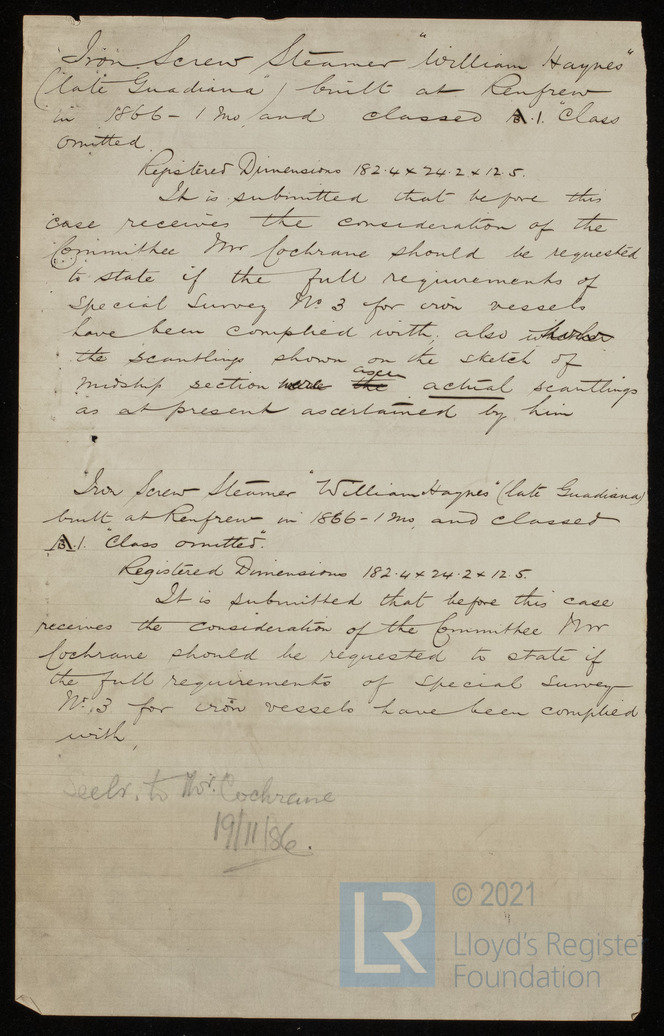 Iron Screw Steamer "William Haynes"
(late Guadiana) built at Renfrew
in 1866 - 1 Mo, and classed A.1. "Class
omitted.
Registered Dimensions 182.4 x 24.2 x 12.5.
It is submitted that before this
case receives the consideration of the
Committee Mr Cochrane should be requested
to state if the full requirements of
Special Survey No. 3 for iron vessels
have been complied with, also whether
the scantlings shown on the sketch of
midship section were the actual scantlings
as at present ascertained by him
Iron Screw Steamer "William Haynes" (late Guadiana)
built at Renfrew in 1866 - 1 Mo, and classed
A1. "Class omitted".
Registered Dimensions 182.4 x 24.2 x 12.5.
It is submitted that before this case
receives the consideration of the Committee Mr
Cochrane should be requested to state if
the full requirements of Special Survey
No. 3 for iron vessels have been complied
with,
to Mr. Cochrane
19/11/86.
LR
© 2021
Lloyd's Register
Foundation